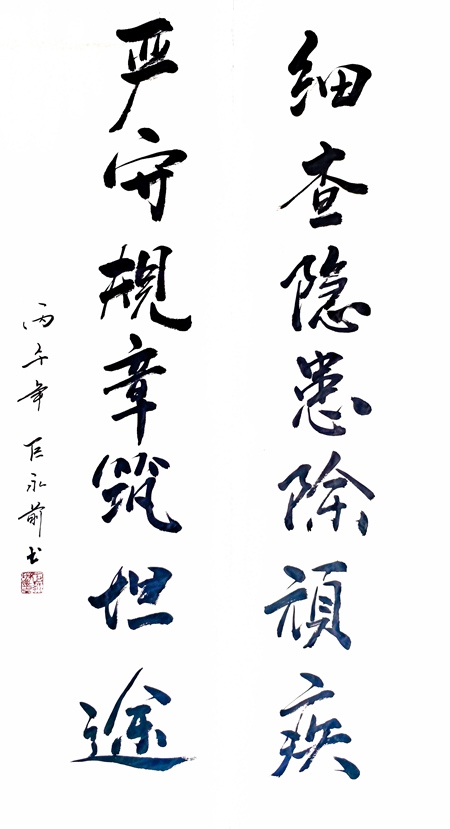 细查隐患除頑疾
严守规章筑坦途
丙午年 巨永前书